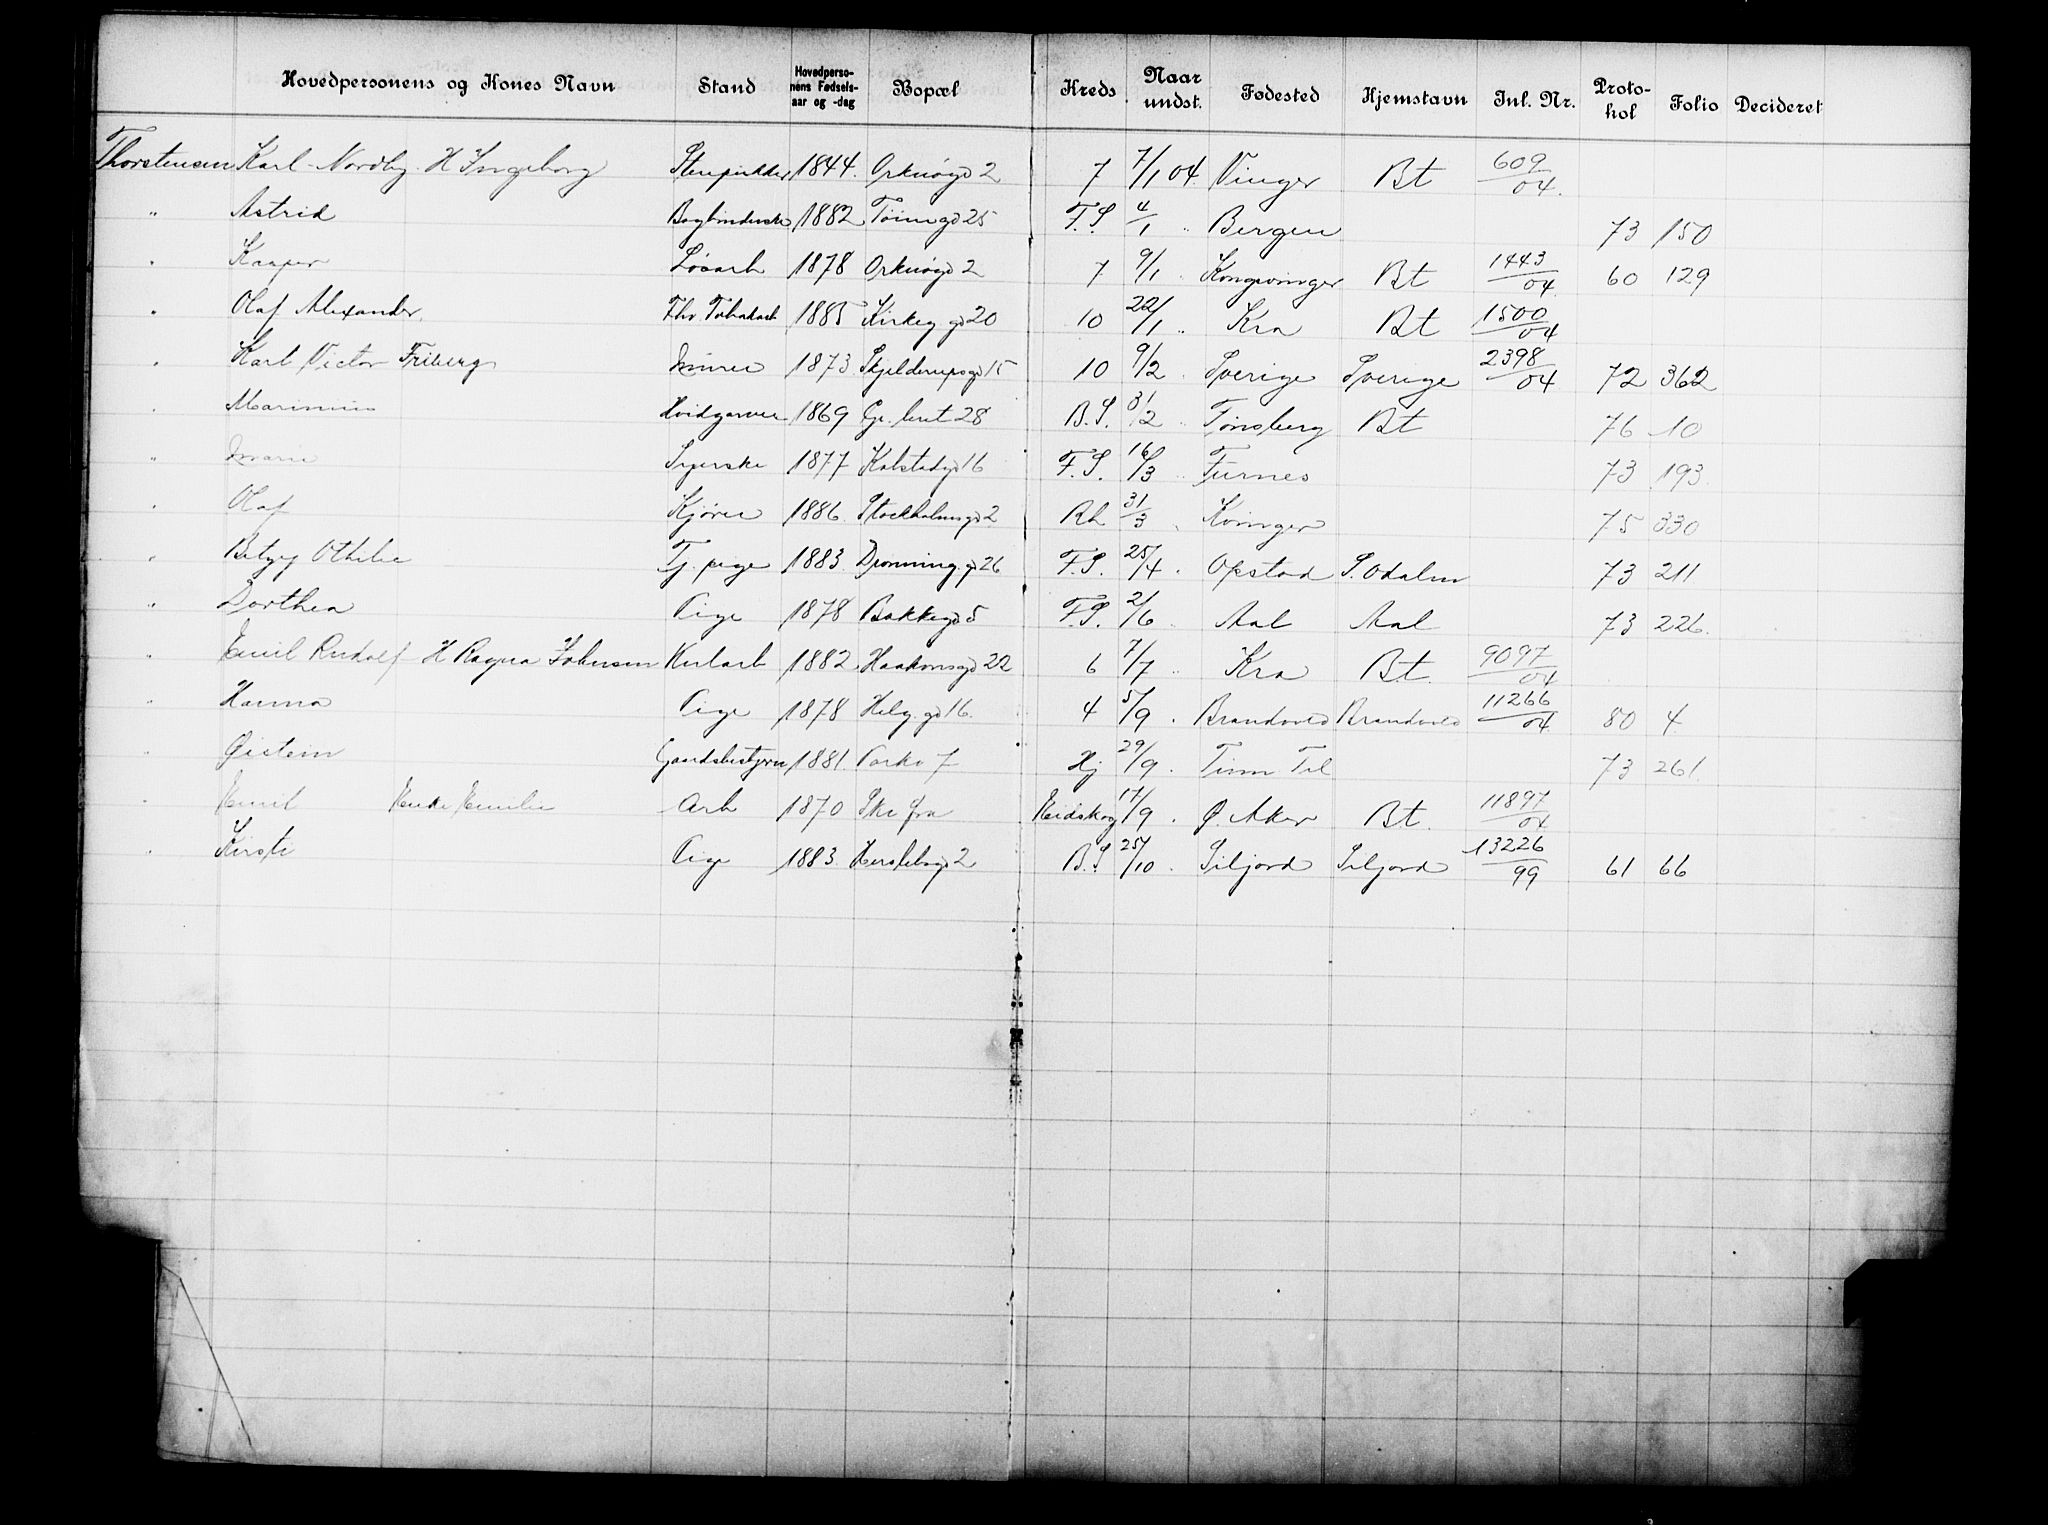 Hovedpersonens og Kones Navn Stand Hovedperso-nens Fødsels-aar og -dag Bopæl Kreds Naar undst. Fødested Hjemstavn Inl. Nr. Proto-kol Folio Decideret
Thorstensen Karl Nordby H Ingeborg Stenpikker 1844. Orknøgd 2 7 7/1 04. Vinger Bt 609/04.
" Astrid Bogbinderske 1882 Tøiengd 25 F.S. 4/1 " Bergen 73 150
" Kasper Løsarb 1878 Orknøgd 2 7 9/1 . Kongsvinger Bt 1443/04 60 129
" Olaf Alexander. Fhv. Tobakarb 1885 Kirkeg gd 20 10 22/1 " Kra Bt 1500/04
" Karl Victor Friberg Murer 1873 Skjelderupsgd 15 10 9/2 . Sverige Sverige 2398/04 72 362
" Marinius Hvidgarver 1869 Gr. leret 28 B.S. 3/2 " Tønsberg Bt 76 10
" Marie Syerske 1877 Kalstadgd 16 F.S. 16/3 " Furnes 73 193.
" Olaf Kjører 1886. Stockholmsgd 2 Rh 31/3 " Kvinger 75 330
" Betzy Othilie Tj. pige 1883. Dronning. gd 26 F.S. 25/4 . Opstad S. Odalen 73 211
" Dorthea Pige 1878 Bakkegd 5 F.S. 2/6 " Aal Aal 73 226.
" Emil Rudolf H Ragna Johnsen Kularb 1882 Haakonsgd 22 6 7/7 " Kra Bt. 9097/04
" Hanna Pige 1878 Helg. gd 16. 4 5/9 . Brandvold Brandvold 11266/04 80 4
" Øistein Gaardsbestyrer 1881. Parkv 7 Hj 29/9 . Tinn Tel 73 261.
" Emil Enke Emilie Arb 1870 Ske fra Eidskog 17/9 . Ø. Aker Bt. 11897/04
" Kirsti Pige 1883. Herslebsgd 2 B.S 25/10 . Siljord Siljord 13226/99 61 66